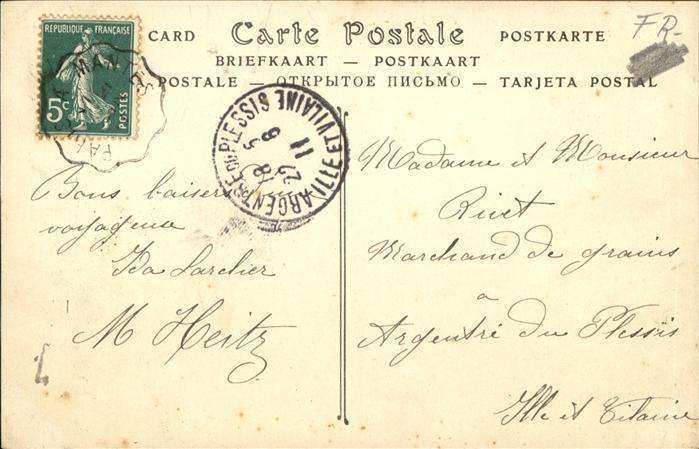 RÉPUBLIQUE FRANÇAISE
5c POSTES
CARD Carte Postale POSTKARTE
BRIEFKAART — POSTKAART
POSTALE — ОТКРЫТОЕ ПИСЬМО — TARJETA POSTAL
FR-
ARGENTRÉ DU PLESSIS ILLE ET VILAINE
11
22
Bons baisers
voyageux
Ida Larcher
M Heitz
Madame et Monsieur
Rivet
Marchand de grains
a
Argentré du Plessis
Ille et Vilaine